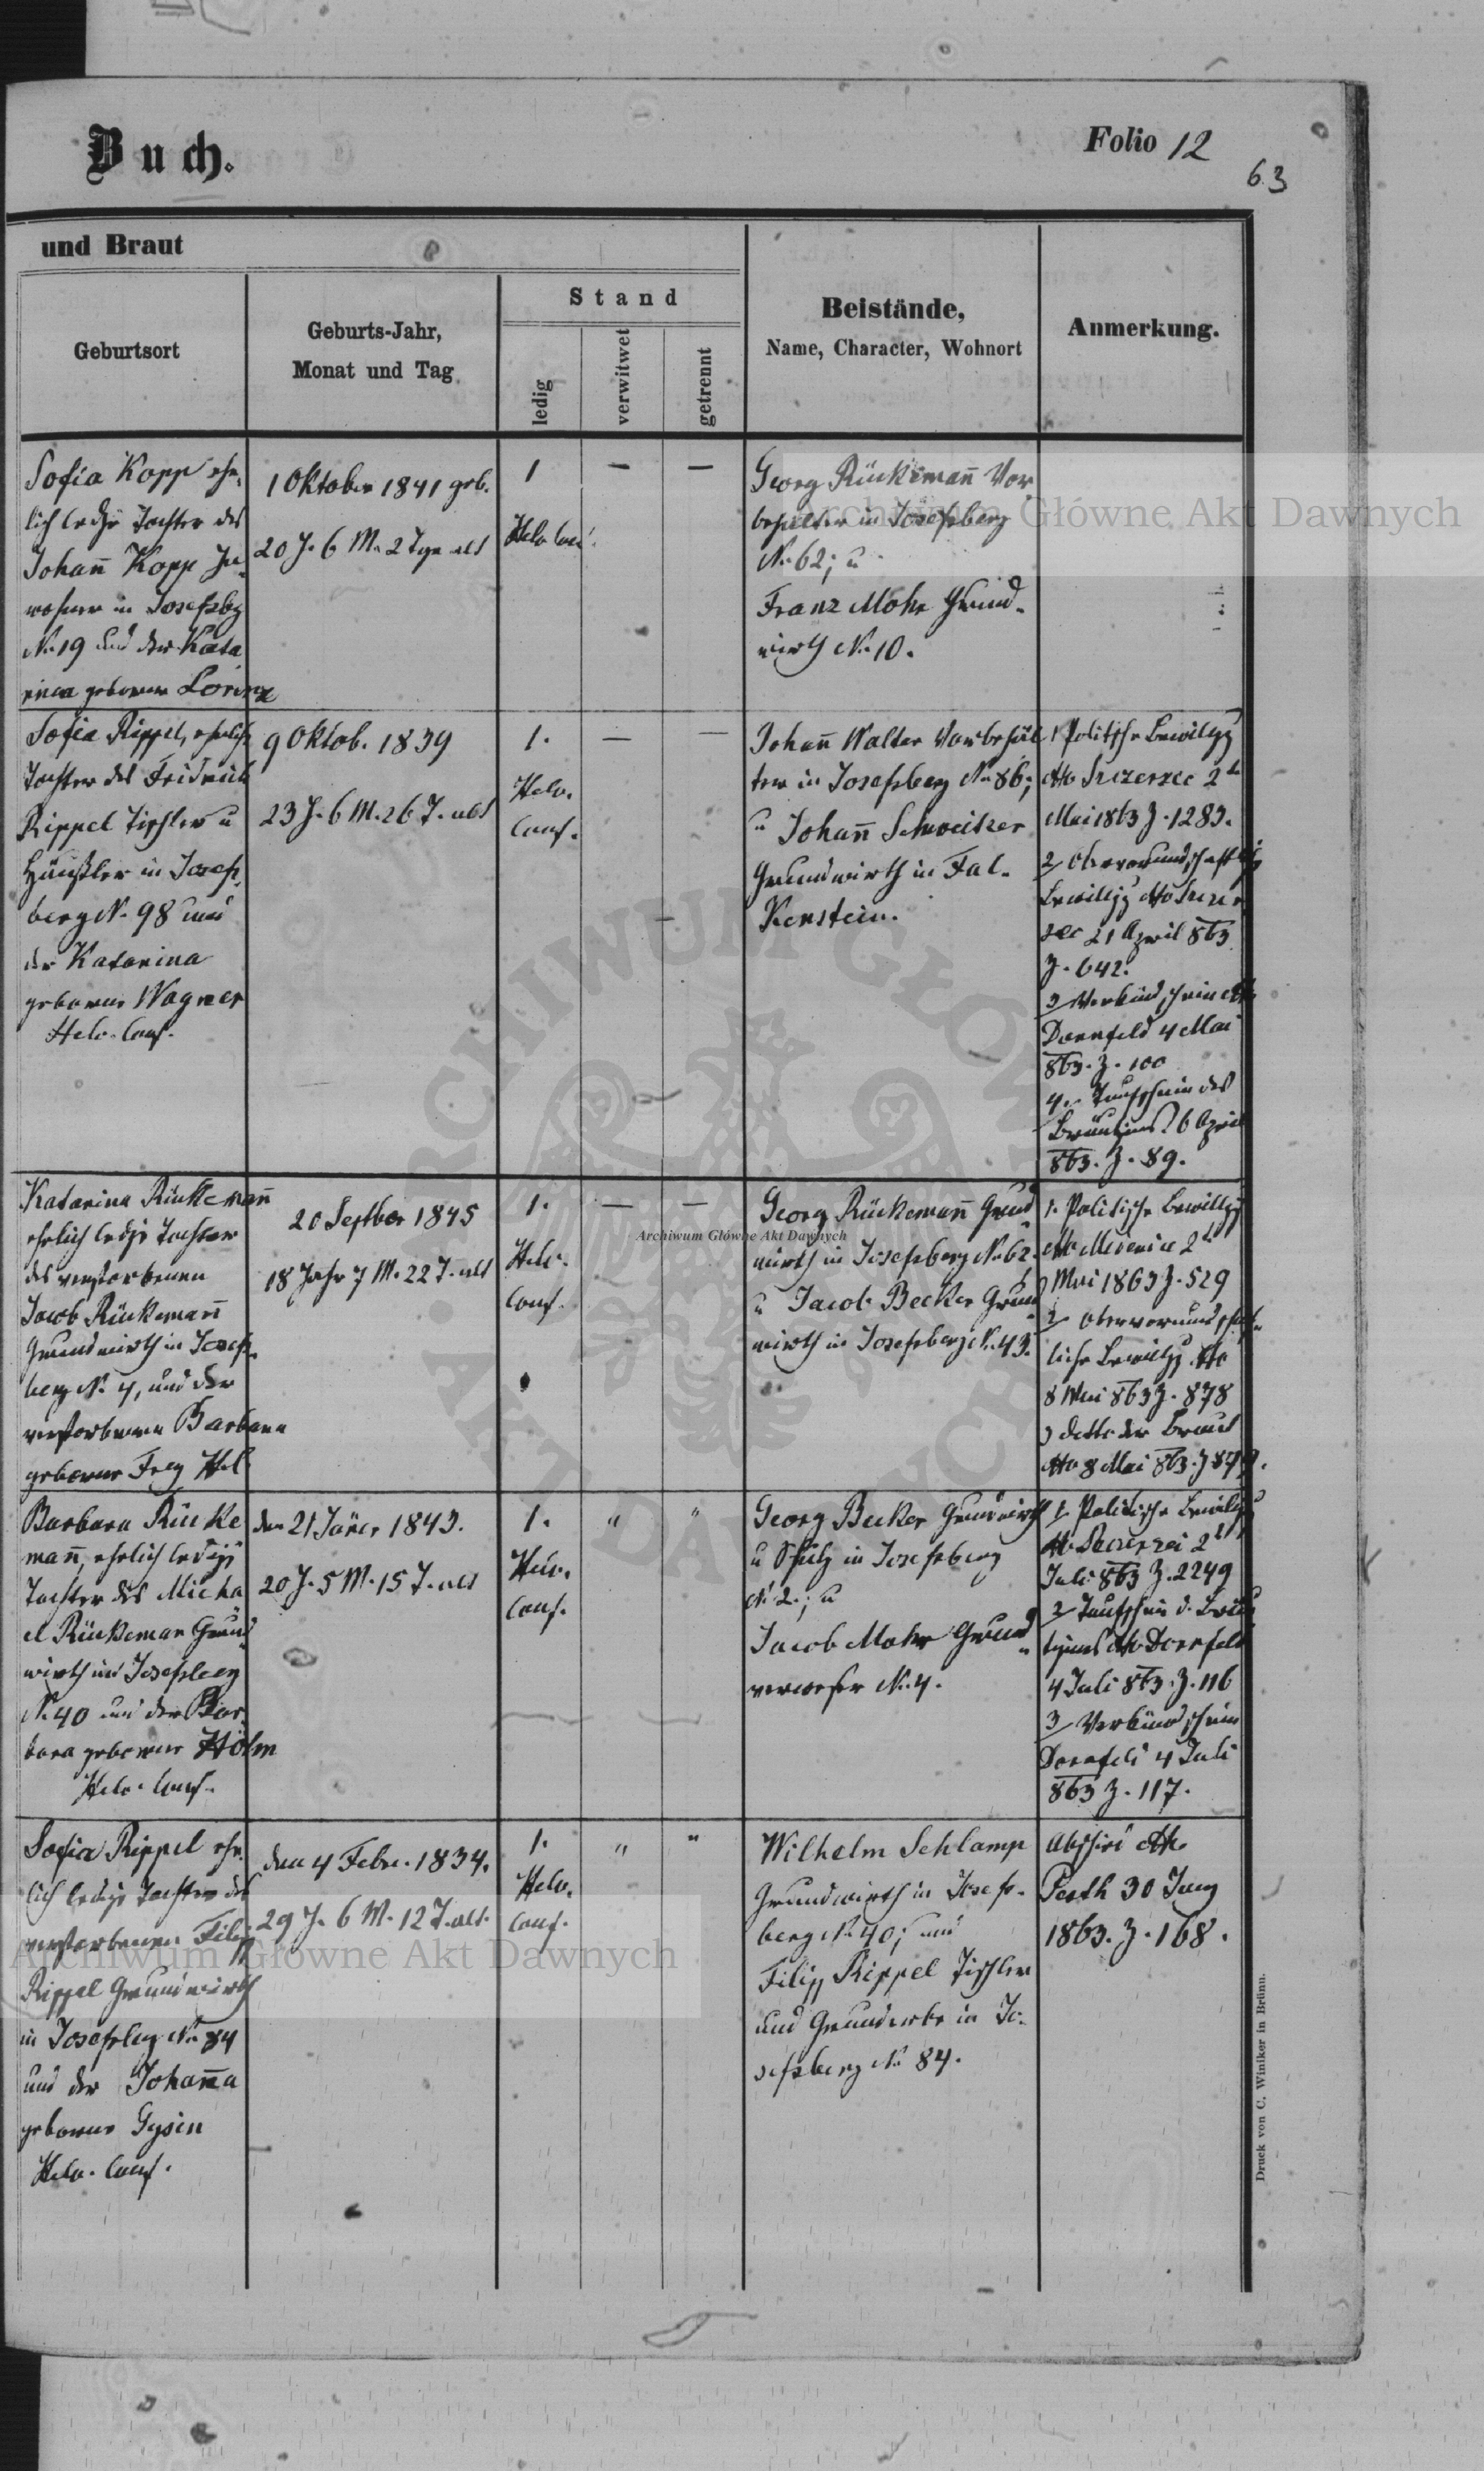 Buch.
Folio 12
63
und Braut
Geburtsort
Geburts-Jahr,
Monat und Tag
Stand
ledig
verwitwet
getrennt
Beistände,
Name, Character, Wohnort
Anmerkung.
Sofia Kopp ehe-
lich ledige Tochter des
Johann̄ Kopp In-
wohner in Josefsbg
No 19 und der Kata
rina geborene Lorenz
1 Oktober 1841 geb.
20 J. 6 M. 2 Tge alt
1
Helv. Conf.
—
—
Georg Rückeman̄ Vor
behälter in Josefsberg
No 62; u
Franz Mohr Grund-
wirth No 10.
Sofia Rippel, eheliche
Tochter des Fridrich
Rippel Tischler u
Häusler in Josefs-
berg No 98 und
der Katarina
geborene Wagner
Helv. Conf.
9 Oktob. 1839
23 J. 6 M. 26 T. alt
1.
Helv.
Conf.
—
—
Johan̄ Walter Vorbehäl
ter in Josefsberg No 86;
u Johan̄ Schweitzer
Grundwirth in Fal-
kenstein.
1 Politsche Bewilgg
dtto Szczerzec 2t
Mai 1863 Z. 1283.
2/ Obervormundschaftlige
Bewillgg dtto Szczer
zec 21 April 863
Z. 642.
3 Verkündschein dtto
Dornfeld 4 Mai
863. Z. 100
4. Taufschein des
Bräutigams 6 April
863. Z. 89.
Katarina Rückeman̄
ehelich ledige Tochter
des verstorbenen
Jacob Rückeman̄
Grundwirth in Josefs-
berg No 4, und der
verstorbenen Barbara
geborene Frey Hel
20 Septber 1845
18 Jahr 7 M. 22 T. alt
1.
Helv.
Conf.
—
—
Georg Rückeman̄ Grund
wirth in Josefsberg No 62.
u Jacob Becker Grund
wirth in Josefsberg No 43.
1. Politische Bewillgg
dtto Medenice 2t
Mai 1863 Z. 529
2/ Obervormundschaft-
liche Bewillgg dtto
8 Mai 863 Z. 878
3 detto der Braut
dtto 8 Mai 863. Z 879.
Barbara Rücke
man̄, ehelich ledige
Tochter des Micha
el Rückeman Grund
wirth in Josefsberg
No 40 und der Bar-
bara geborene Höhn
Helv. Conf.
den 21 Jäner 1843.
20 J. 5 M. 15 T. alt
1.
Helv.
Conf.
"
"
Georg Becker Grundwirth
u Schulz in Josefsberg
No 2.; u
Jacob Mohr Grund
verweser No 4.
1 Politische Bewillgg
dtto Szczerzec 2t
Juli 863 Z. 2249
2/ Taufschein d. Bräu
tigams dtto Dornfeld
4 Juli 863. Z. 116
3/ Verkündschein
Dornfeld 4 Juli
863 Z. 117.
Sofia Rippel ehe-
lich ledige Tochter des
verstorbenen Filip
Rippel Grundwirth
in Josefsbeg No 84
und der Johan̄a
geborene Gysin
Helv. Conf.
den 4 Febr. 1834.
29 J. 6 M. 12 T. alt.
1.
Helv.
Conf.
"
"
Wilhelm Schlamp
Grundwirth in Josefs-
berg No 40; und
Filipp Rippel Tischler
und Grunderbe in Jo-
sefsberg No 84.
Abschid dtto
Pesth 30 Juny
1863. Z. 168.
Druck von C. Winiker in Brünn.
Archiwum Główne Akt Dawnych
Archiwum Główne Akt Dawnych
Archiwum Główne Akt Dawnych
ARCHIWUM GŁÓWNE AKT DAWNYCH